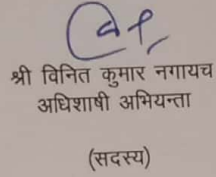 श्री विनित कुमार नगायच
अधिशाषी अभियन्ता
(सदस्य)